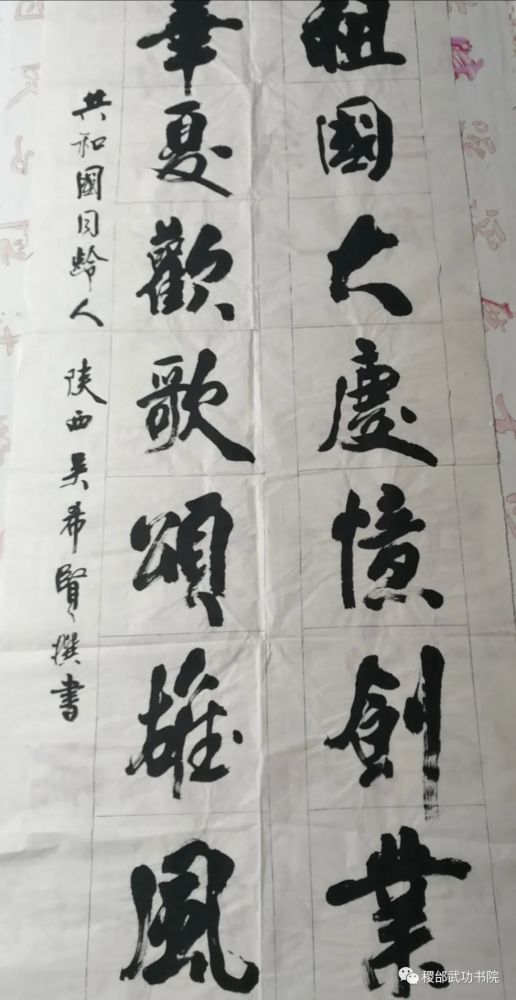 祖國大慶憶創業
華夏歡歌頌雄風
共和國同齡人 陕西吴希賢撰書
稷邰武功书院